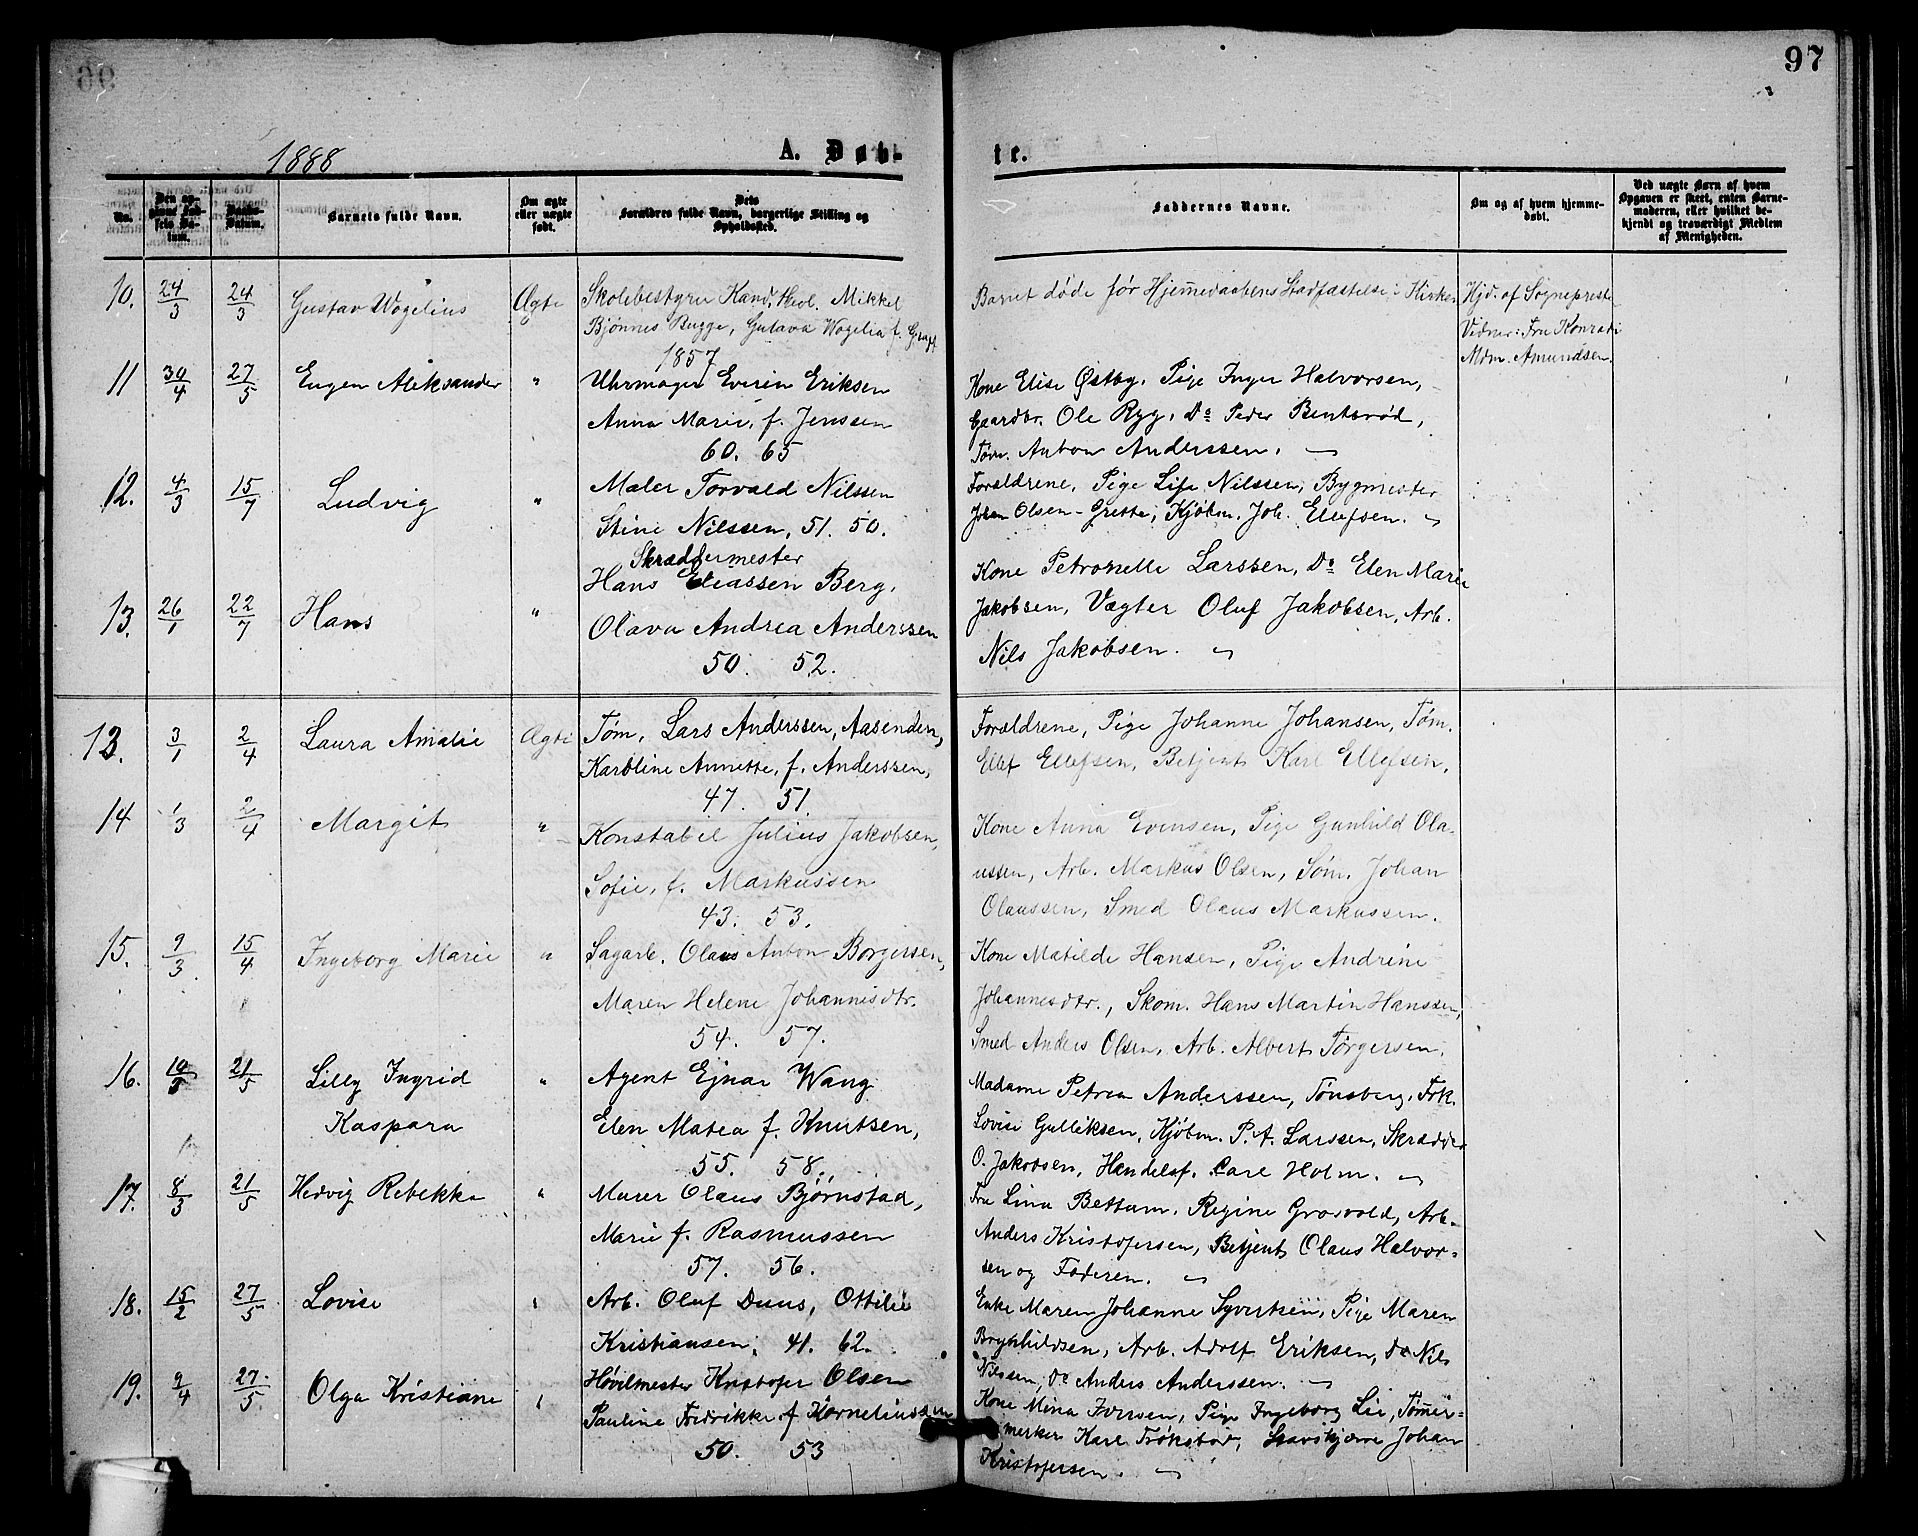 97
1888
A. Døb-
te.
No.
Den op-
givne Fød-
sels Da-
tum.
Daabs-
Datum.
Barnets fulde Navn.
Om ægte
eller uægte
født.
Dets
Forældres fulde Navn, borgerlige Stilling og
Opholdssted.
Faddernes Navne.
Om og af hvem hjemme-
døbt.
Ved uægte Børn af hvem
Opgaven er skeet, enten Barne-
moderen, eller hvilket be-
kjendt og troværdigt Medlem
af Menigheden.
10. 24/3 24/3 Gustav Wogelius Ægte Skolebestyrer Kand. theol. Mikkel
Bjønnes Bugge, Gustava Wogelia f.
1857
Barnet døde før Hjemmedaabens Stadfæstelse i Kirken
Hjd. af Sogneprest
Vidner: Fru Konradi
Mdm. Amundsen.
11 30/4 27/5 Eugen Aleksander " Uhrmager Everin Eriksen
Anna Marie, f. Jenssen
60. 65
Kone Elise Østby, Pige Inger Halvorsen,
Gaardbr. Ole Ryg, Do Peder Bentsrød,
Tøm. Anton Anderssen.
12. 4/3 15/7 Ludvig " Maler Torvald Nilssen
Stine Nilssen, 51. 50.
Forældrene, Pige Lise Nilssen, Bygmester
Johan Olsen-Grette, Kjøbm. Joh. Ellefsen.
13. 26/1 22/7 Hans " Skræddermester
Hans Eliassen Berg,
Olava Andrea Anderssen
50. 52.
Kone Petronelle Larssen, Do Elen Marie
Jakobsen, Vægter Oluf Jakobsen, Arb.
Nils Jakobsen.
13. 3/1 2/4 Laura Amalie Ægte Tøm. Lars Anderssen, Aasenden,
Karoline Annette, f. Anderssen,
47. 51
Forældrene, Pige Johanne Johansen, Tøm.
Ellef Ellefsen, Betjent Karl Ellefsen.
14 1/3 2/4 Margit " Konstabel Julius Jakobsen,
Sofie, f. Markussen
43. 53.
Kone Anna Evensen, Pige Gunhild Ola-
ussen, Arb. Markus Olsen, Søm. Johan
Olaussen, Smed Olaus Markussen.
15. 9/3 15/4 Ingeborg Marie " Sagarb. Olaus Anton Borgersen,
Maren Helene Johannisdtr.
54. 57.
Kone Matilde Hansen, Pige Andrine
Johannesdtr., Skom. Hans Martin Hanssen,
Smed Anders Olsen, Arb. Albert Torgersen.
16. 21/5 Lilly Ingrid " Agent Ejnar Wang
Kaspara Elen Matea f. Knutsen,
55. 58.
Madame Petrea Anderssen, Tønsberg, Frk.
Lovise Gulliksen, Kjøbm. P. A. Larssen, Skrædder
O. Jakobsen, Handelsf. Carl Holm.
17. 8/3 21/5 Hedvig Rebekka " Murer Olaus Bjørnstad,
Marie f. Rasmussen
57. 56.
Fru Lina Bettum, Regine Grosvold, Arb.
Anders Kristofersen, Betjent Olaus Halvor-
sen og Faderen.
18. 15/2 27/5 Lovise " Arb. Oluf Duus, Ottilie
Kristiansen, 41. 62.
Enke Maren Johanne Syvertsen, Pige Maren
Brynhildsen, Arb. Adolf Eriksen, Do Nils
Nilssen, Do Anders Anderssen.
19. 9/4 27/5. Olga Kristiane " Høvelmester Kristofer Olsen
Pauline Fredrikke f. Korneliussen
50. 53
Kone Mina Iversen, Pige Ingeborg Lie, Tømmer-
merker Karl Trøkstad, Johan
Kristofersen.